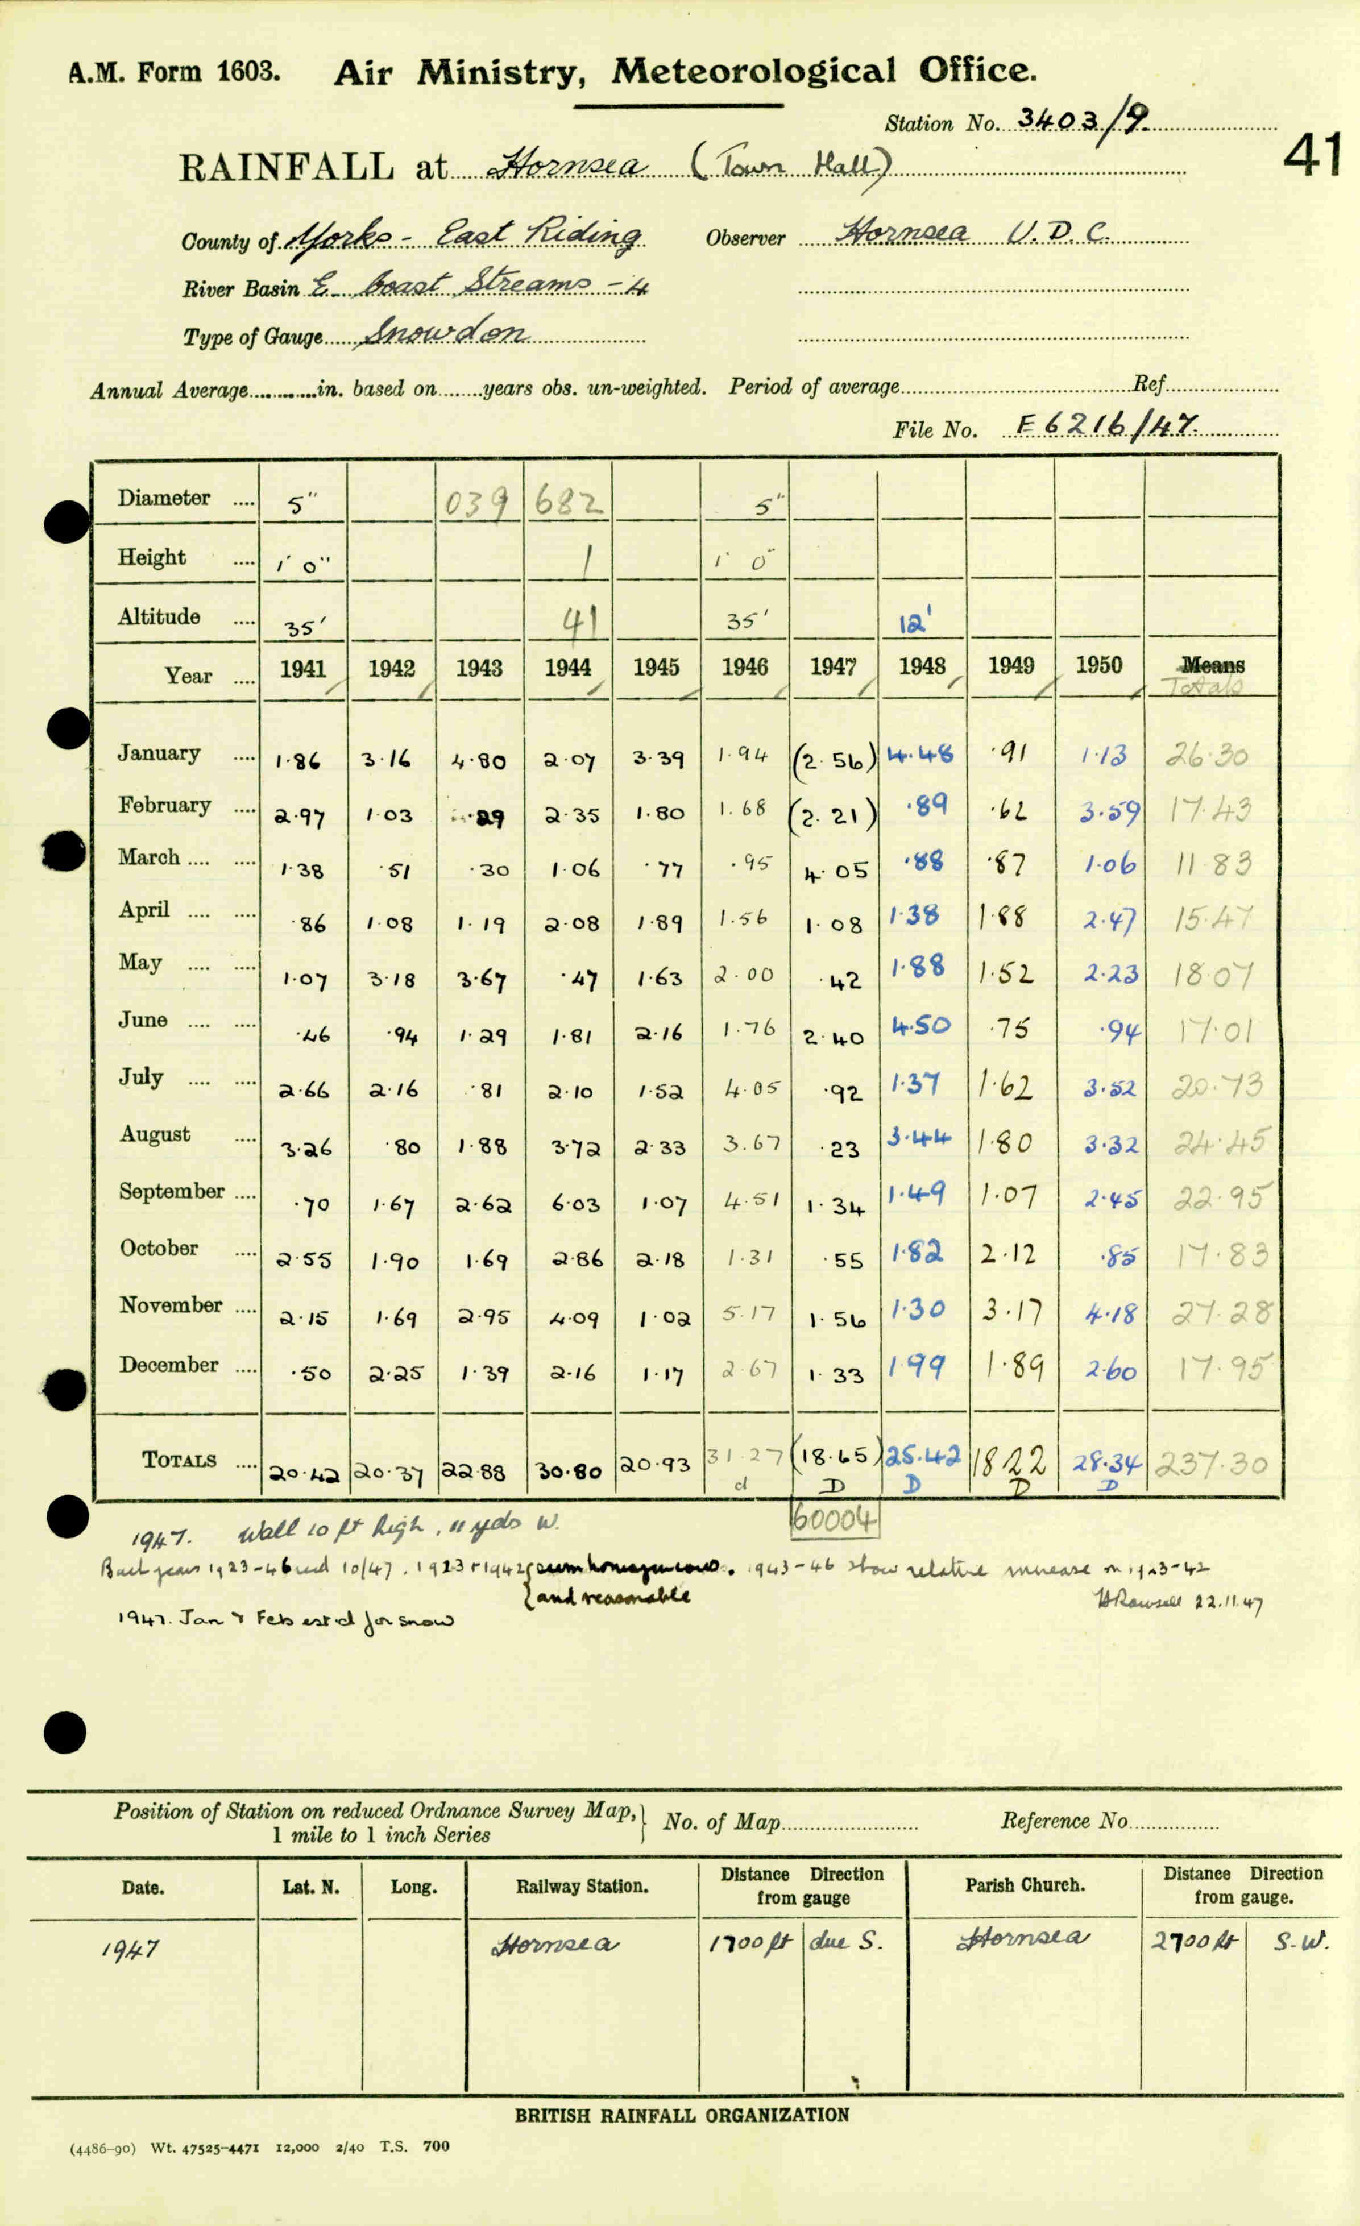 A.M. Form 1603. Air Ministry, Meteorological Office.
Station No. 3403/9.
41
RAINFALL at Hornsea (Town Hall)
County of Yorks - East Riding Observer Hornsea U.D.C.
River Basin E. Coast Streams - 4
Type of Gauge Snowdon
Annual Average in. based on years obs. un-weighted. Period of average Ref
File No. E6216/47.
Diameter .... 5" 039 682 5"
Height .... 1' 0" 1 1' 0"
Altitude .... 35' 41 35' 12'
Year .... 1941 1942 1943 1944 1945 1946 1947 1948 1949 1950 Means
Totals
January .... 1.86 3.16 4.80 2.07 3.39 1.94 (2.56) 4.48 .91 1.13 26.30
February .... 2.97 1.03 .29 2.35 1.80 1.68 (2.21) .89 .62 3.59 17.43
March .... .... 1.38 .51 .30 1.06 .77 .95 4.05 .88 .87 1.06 11.83
April .... .... .86 1.08 1.19 2.08 1.89 1.56 1.08 1.38 1.88 2.47 15.47
May .... .... 1.07 3.18 3.67 .47 1.63 2.00 .42 1.88 1.52 2.23 18.07
June .... .... .46 .94 1.29 1.81 2.16 1.76 2.40 4.50 .75 .94 17.01
July .... .... 2.66 2.16 .81 2.10 1.52 4.05 .92 1.37 1.62 3.52 20.73
August .... 3.26 .80 1.88 3.72 2.33 3.67 .23 3.44 1.80 3.32 24.45
September .... .70 1.67 2.62 6.03 1.07 4.51 1.34 1.49 1.07 2.45 22.95
October .... 2.55 1.90 1.69 2.86 2.18 1.31 .55 1.82 2.12 .85 17.83
November .... 2.15 1.69 2.95 4.09 1.02 5.17 1.56 1.30 3.17 4.18 27.28
December .... .50 2.25 1.39 2.16 1.17 2.67 1.33 1.99 1.89 2.60 17.95
TOTALS .... 20.42 20.37 22.88 30.80 20.93 31.27 (18.65) 25.42 18.22 28.34 237.30
d D D D D
60004
1947. Wall 10 ft high, 11 yds W.
Back years 1923-46 recd 10/47. 1923 & 1942 {seem homogeneous. 1943-46 show relative increase on 1923-42
{and reasonable
HRowsell 22.11.47
1947. Jan & Feb est'd for snow
Position of Station on reduced Ordnance Survey Map,} No. of Map Reference No.
1 mile to 1 inch Series
Date. Lat. N. Long. Railway Station. Distance Direction from gauge Parish Church. Distance Direction from gauge.
1947 Hornsea 1700 ft due S. Hornsea 2700 ft S.W.
BRITISH RAINFALL ORGANIZATION
(4486-90) Wt. 47525-4471 12,000 2/40 T.S. 700